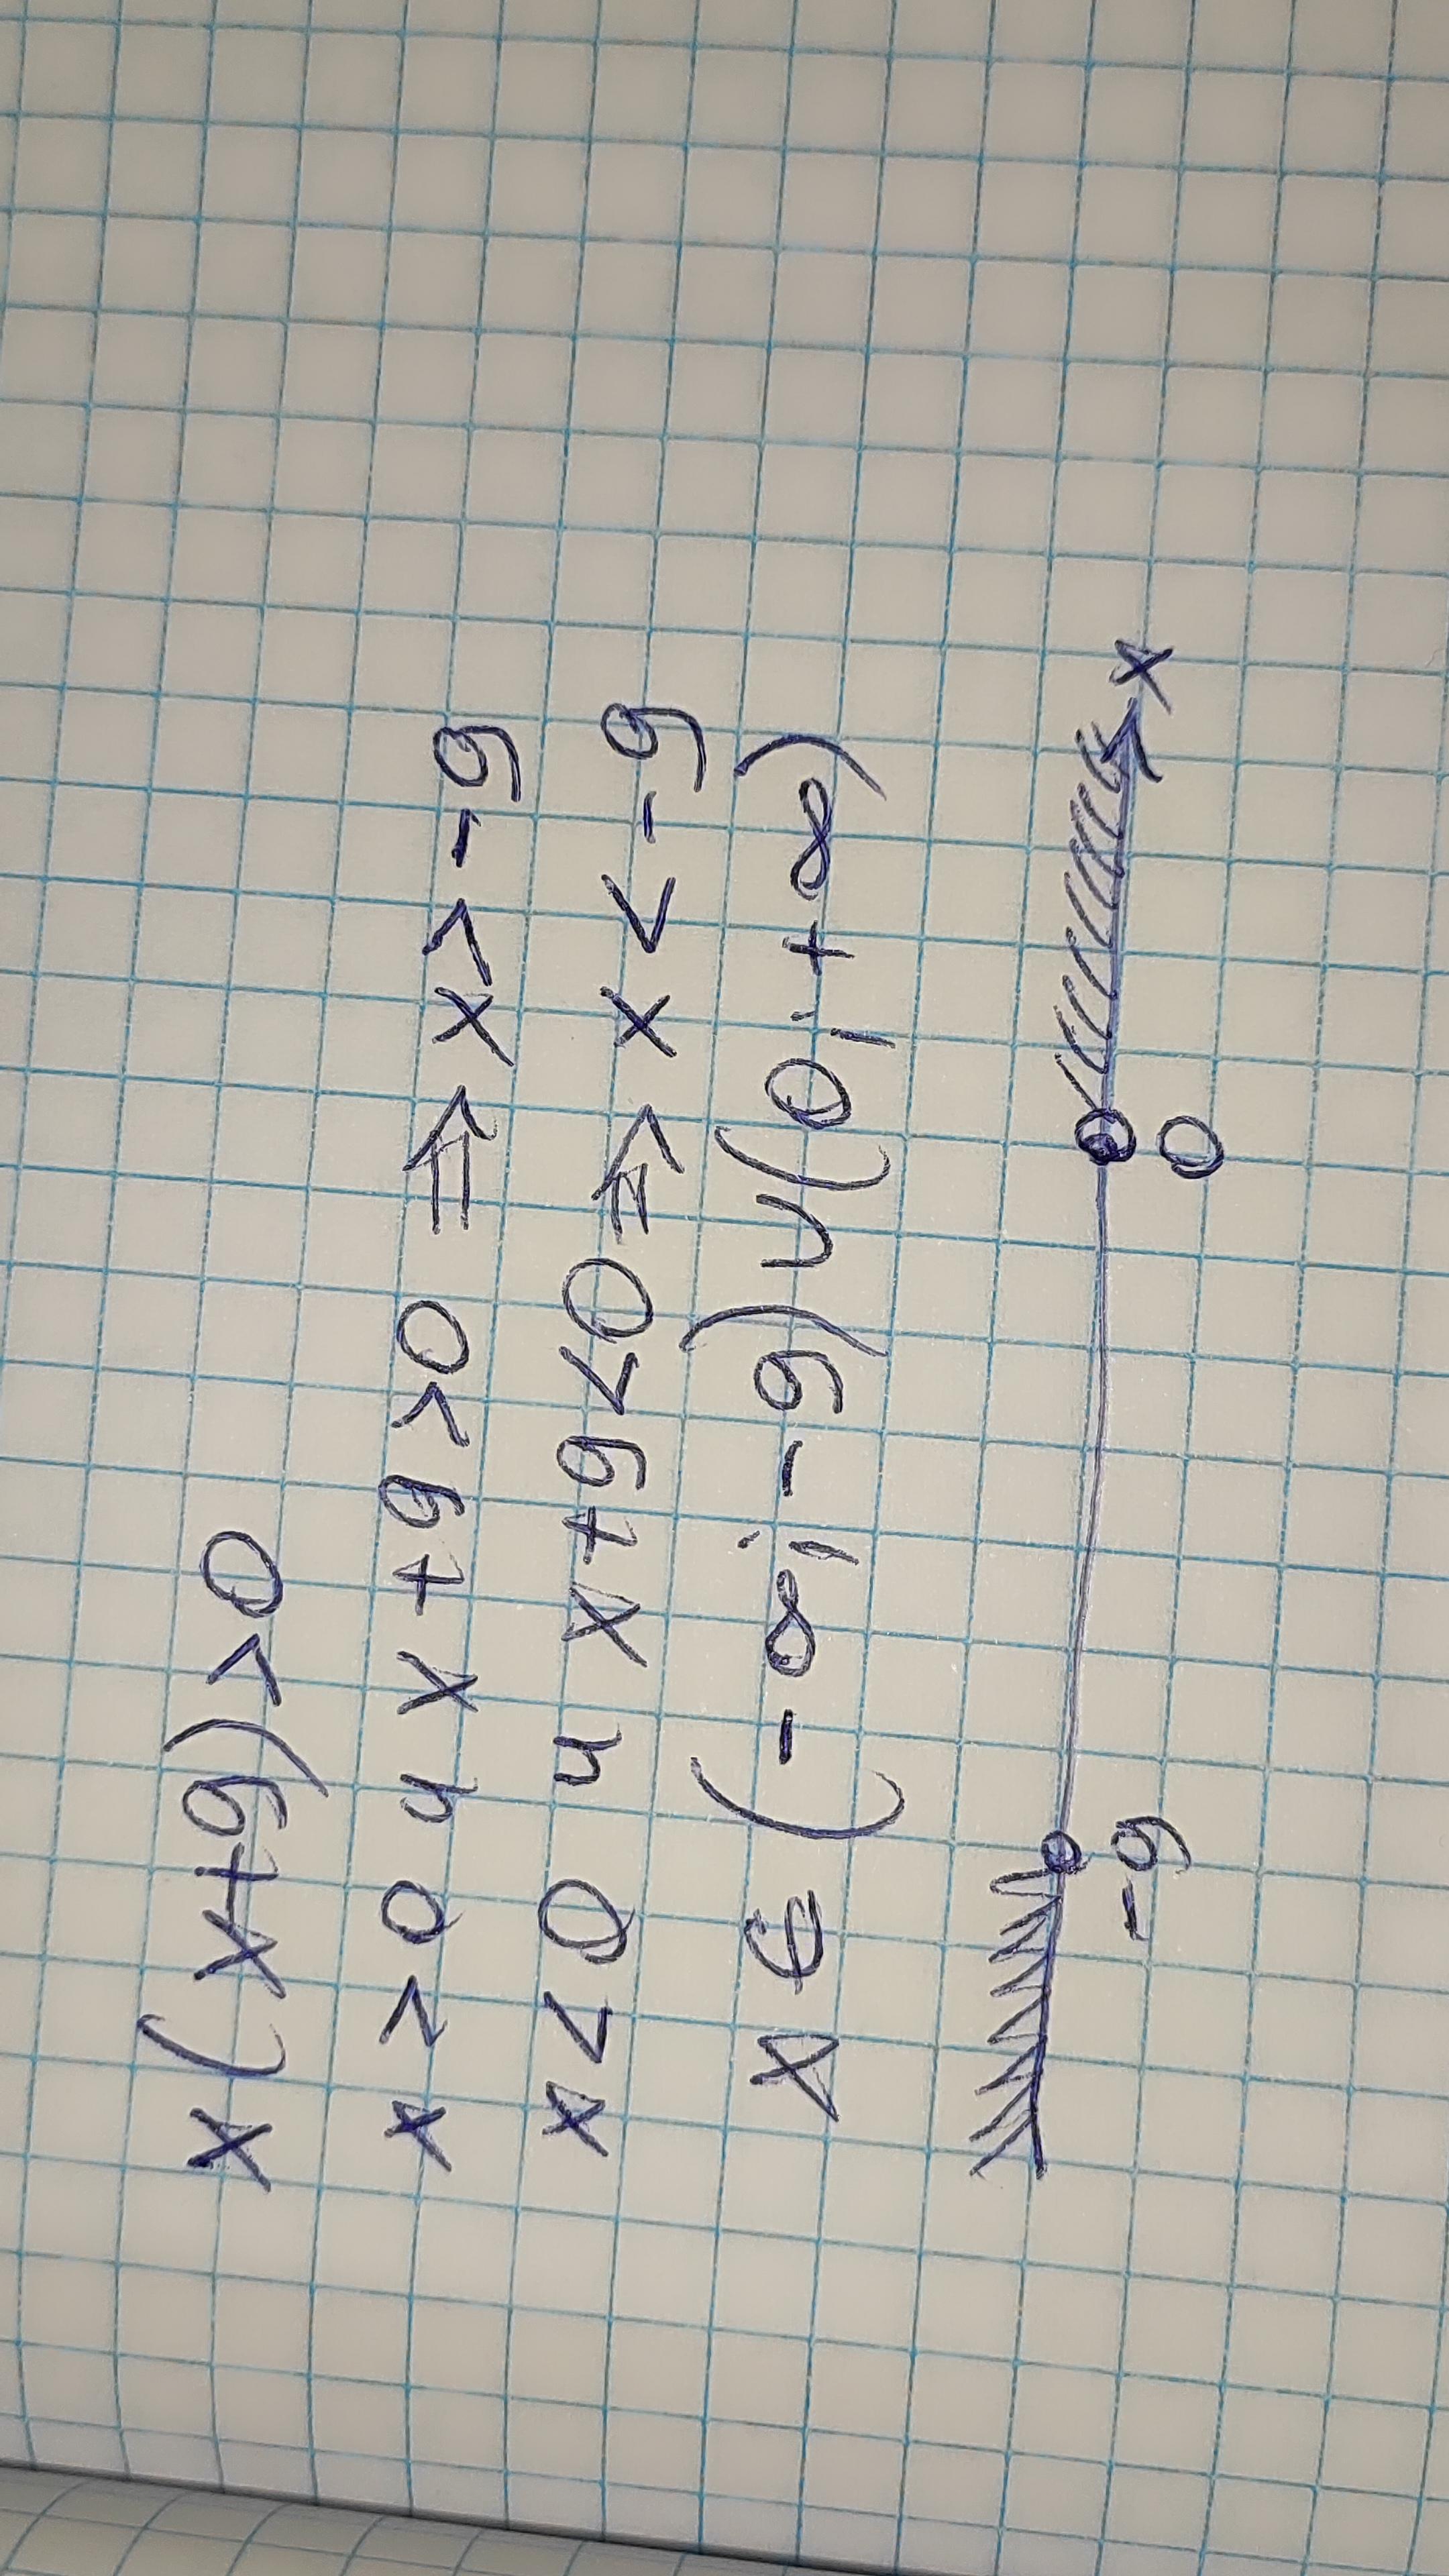 x(x+9)>0
x>0 и x+9>0 ⇒ x>-9
x<0 и x+9<0 ⇒ x<-9
x∈(-∞;-9)∪(0;+∞)
-9 0 x